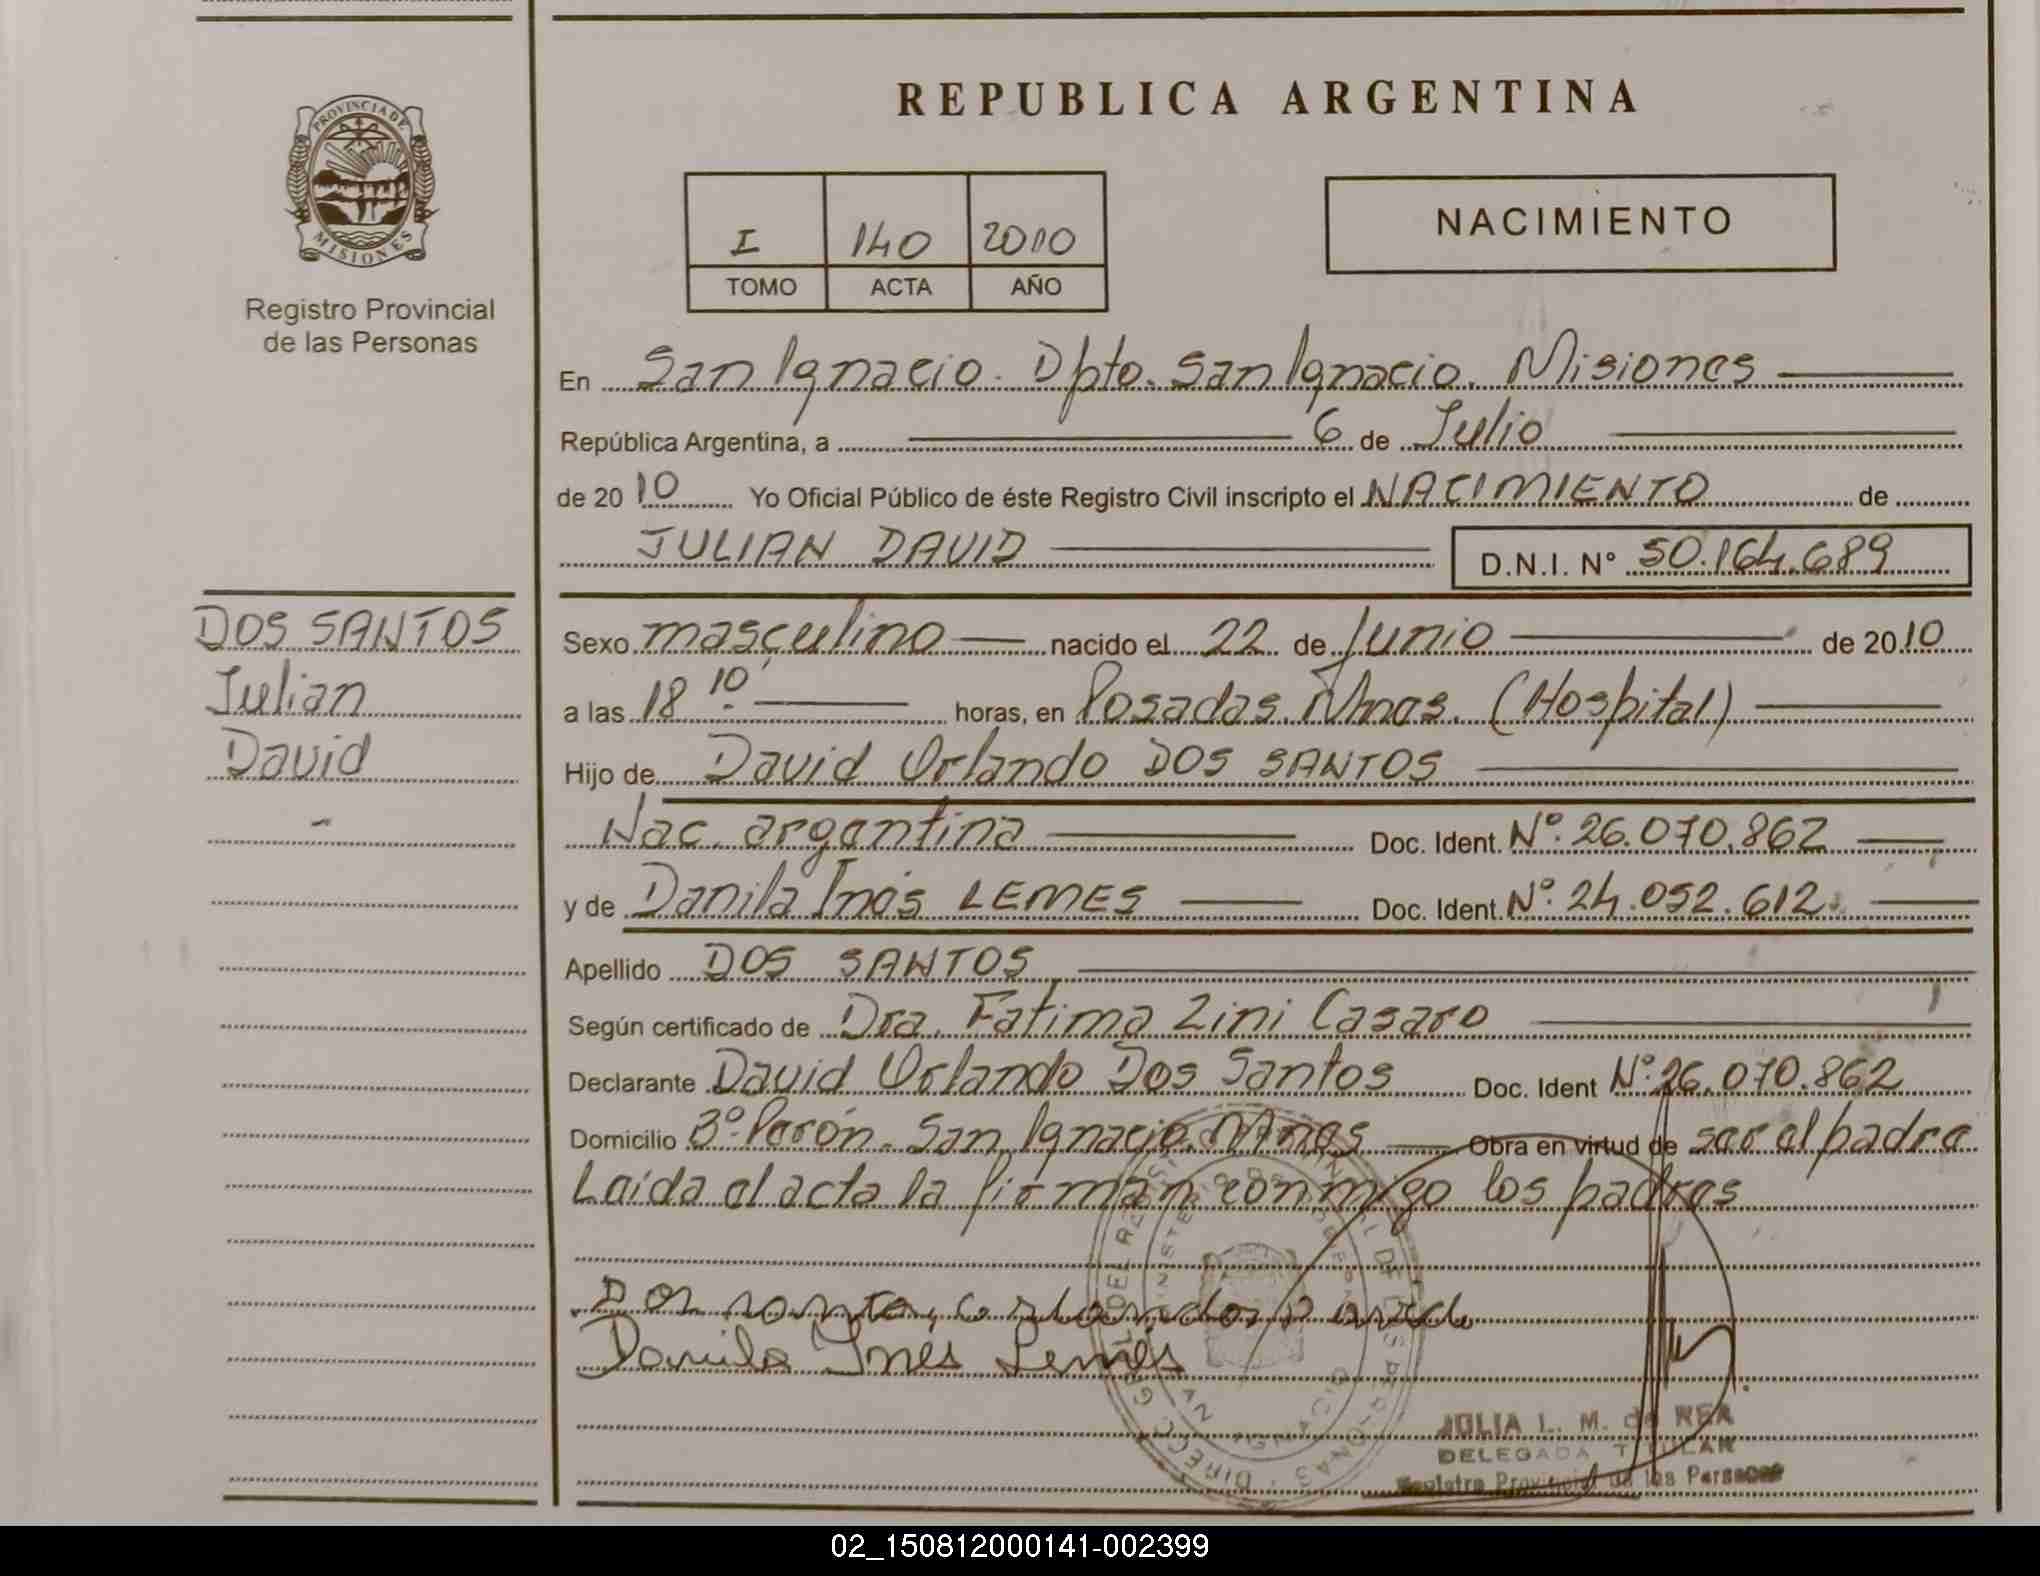 PROVINCIA DE
MISIONES
Registro Provincial
de las Personas
DOS SANTOS
Julian
David
REPUBLICA ARGENTINA
I 140 2010
TOMO ACTA AÑO
NACIMIENTO
En San Ignacio. Dpto. San Ignacio. Misiones
República Argentina, a 6 de Julio
de 2010 Yo Oficial Público de éste Registro Civil inscripto el NACIMIENTO de
JULIAN DAVID D.N.I. Nº 50.164.689
Sexo masculino nacido el 22 de Junio de 2010
a las 18:10 horas, en Posadas. Mnes. (Hospital)
Hijo de David Orlando DOS SANTOS
Nac. argentina Doc. Ident. Nº. 26.070.862
y de Danila Inés LEMES Doc. Ident. Nº. 24.052.612
Apellido DOS SANTOS
Según certificado de Dra. Fatima Zini Casaro
Declarante David Orlando Dos Santos Doc. Ident Nº. 26.070.862
Domicilio Bº. Perón. San Ignacio. Mnes Obra en virtud de ser el padre
Leída el acta la firman conmigo los padres
Dos santos, orlando David
Danila Ines Lemes
JULIA L. M. de REA
DELEGADA TITULAR
Registro Provincial de las Personas
02_150812000141-002399